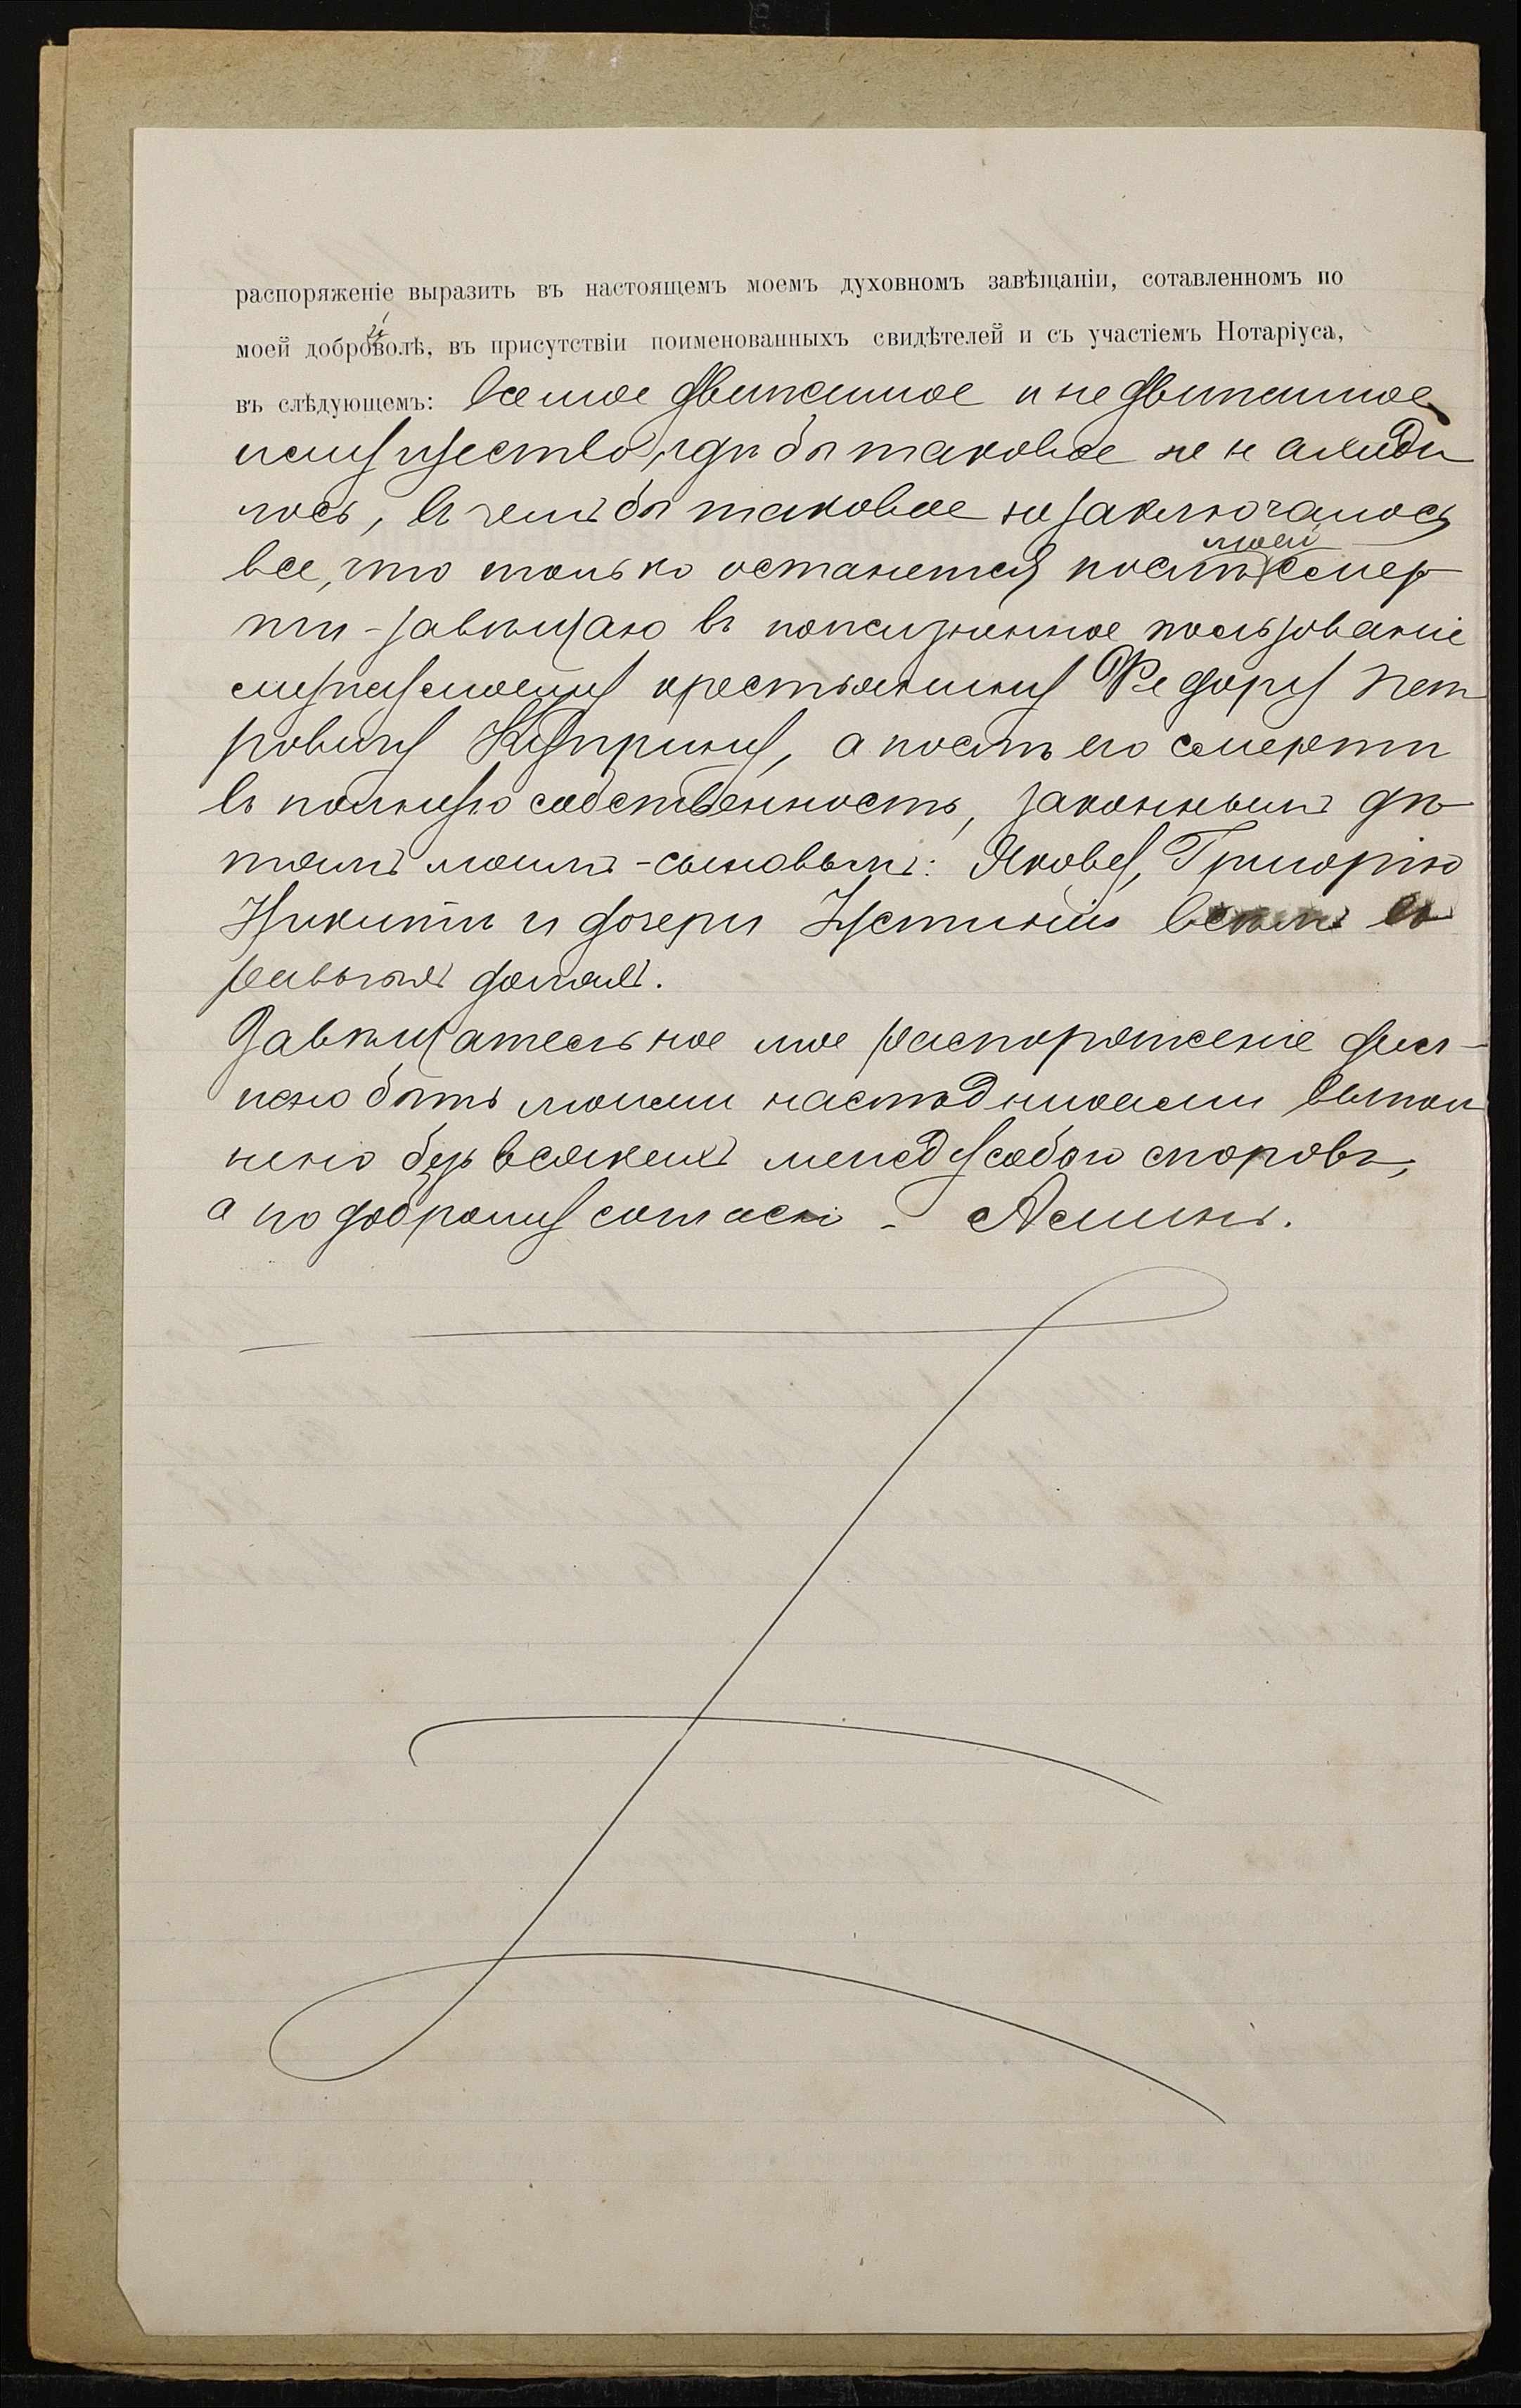 распоряженіе выразить въ настоящемъ моемъ духовномъ завѣщаніи, сотавленномъ по
моей доброй волѣ, въ присутствіи поименованныхъ свидѣтелей и съ участіемъ Нотаріуса,
въ слѣдующемъ: все мое движимое и недвижимое
имущество, гдѣ бы таковое не находи
лось, въ чемъ бы таковое не заключалось
моей
все, что только останется послѣ смер
ти - завѣщаю въ пожизненное пользованіе
мужу моему крестьянину Федору Пет
ровичу Куприну, а послѣ его смерти
въ полную собственность, законнымъ дѣ
тямъ моимъ - сыновьямъ: Якову, Григорію
Никитѣ и дочери Устиніи всѣмъ въ
равныхъ доляхъ.
Завѣщательное мое распоряженіе долж-
но быть моими наслѣдниками выпол
нено безъ всякихъ между собою споровъ,
а по доброму согласію - Аминь.